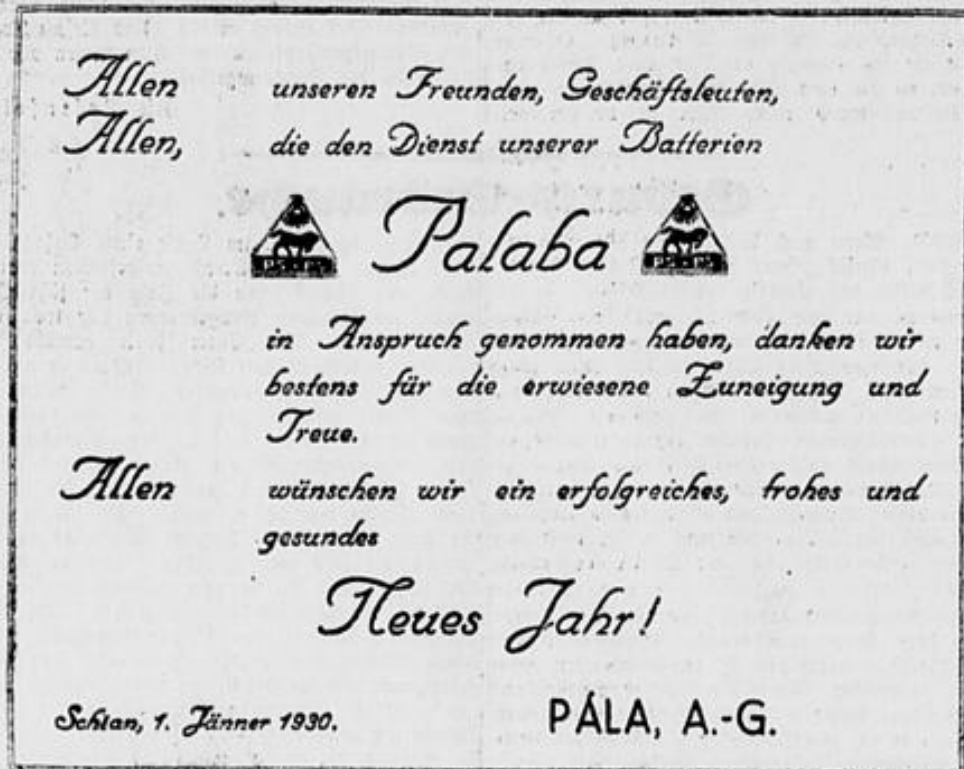 Allen unseren Freunden, Geschäftsleuten,
Allen, die den Dienst unserer Batterien
Palaba
in Anspruch genommen haben, danken wir
bestens für die erwiesene Zuneigung und
Treue.
Allen wünschen wir ein erfolgreiches, frohes und
gesundes
Neues Jahr!
Schlan, 1. Jänner 1930.
PÁLA, A.-G.